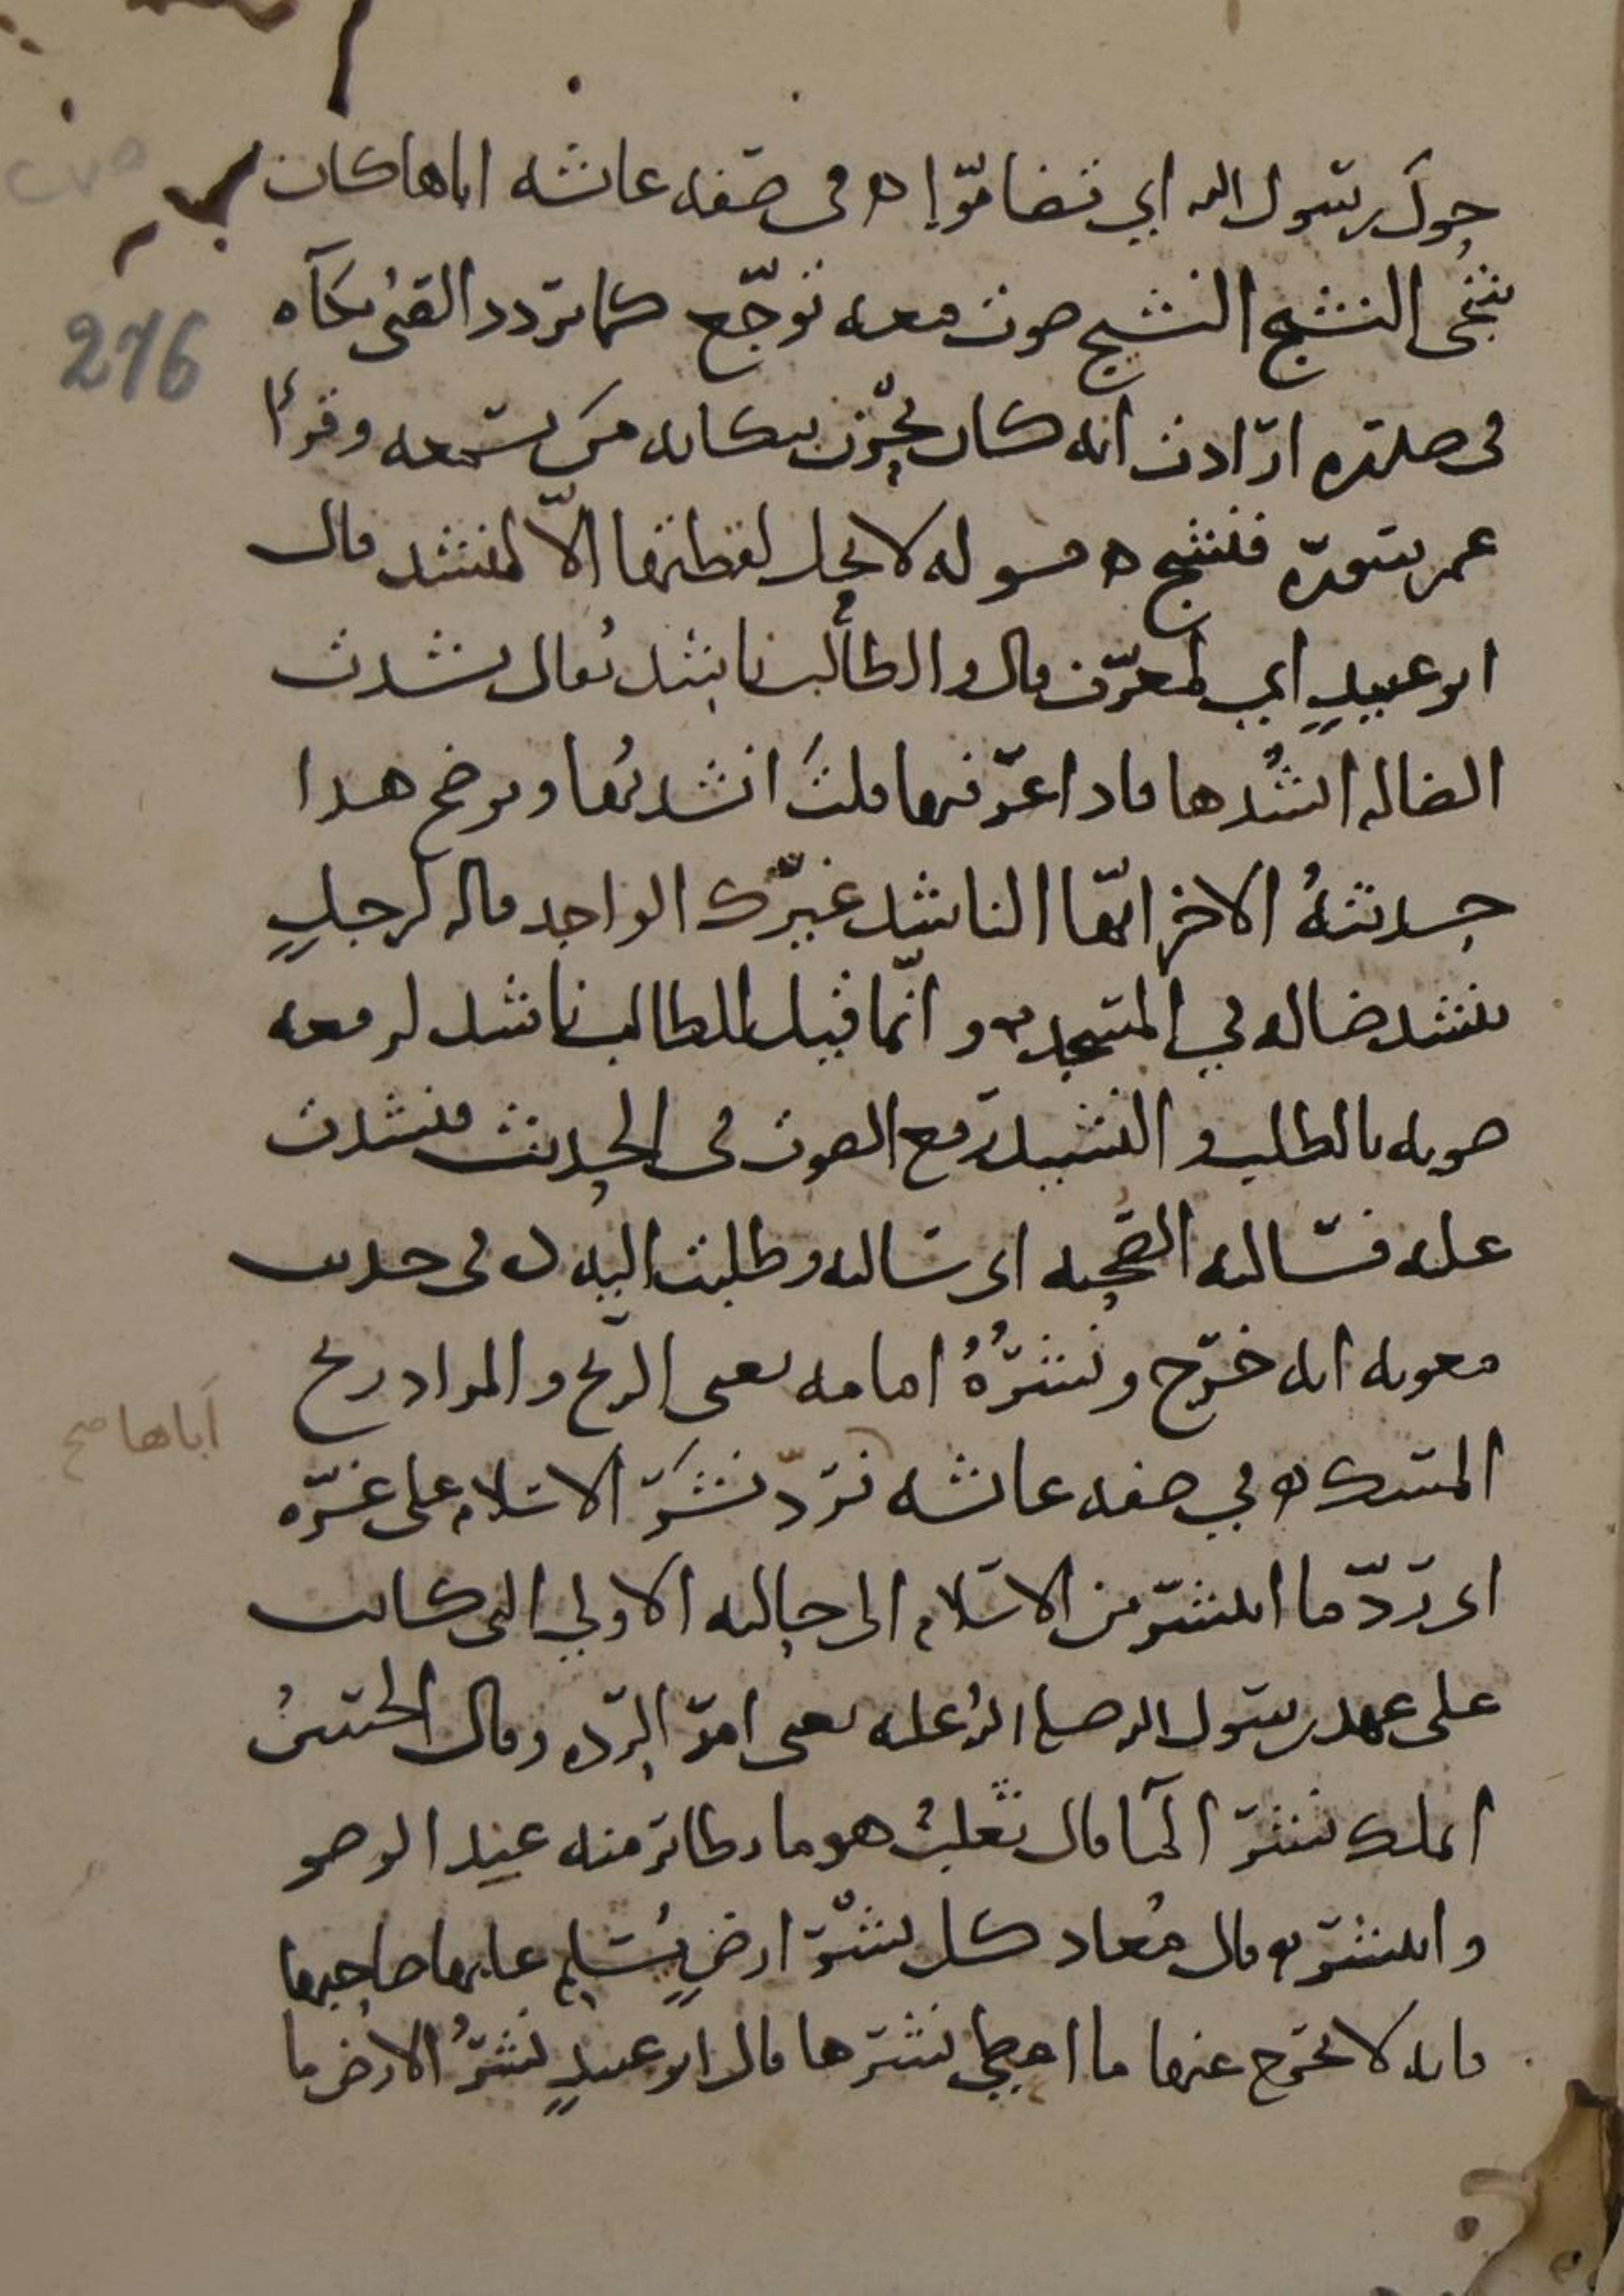 حول رسول الله اي تضاموا ه في صفه عائشه اباها كان
شجي النشيج النشيج صوت معه توجع كما تردد الصبي بكآه
في صدره ارادت انه كان يحزن ببكائه من يسمعه وقرأ
عمر سورة فنشج ه قوله لا يحل لقطتها الا لمنشد قال
ابو عبيد اي لمعرف قال والطالب ناشد يقال نشدت
الضاله انشدها فاذا عرفتها قلت انشدتها ويوضح هذا
حديثه الاخر ايها الناشد غيرك الواجد قاله لرجل
ينشد ضاله في المسجد ه وانما قيل للطالب ناشد لرفعه
صوته بالطلب والنشيد رفع الصوت في الحديث فنشدت
عليه فسالته الصحبه اي سالته وطلبت اليه ه في حديث
معويه انه خرج ونشره امامه يعني الريح والمراد ريح
المسك ه في صفه عائشه فرد نشر الاسلام على غره
اباها صح
اي رد ما انتشر من الاسلام الى حالته الاولي التي كانت
على عهد رسول الله صلى الله عليه يعني امر الرده وقال الحسن
املك نشر الما قال ثعلب هو ما تطاير منه عند الوضو
وانتشر ه قال معاذ كل نشر ارض يسلم عليها صاحبها
فانه لا يخرج عنها ما اعطي نشرها قال ابو عبيد نشر الارض ما
276